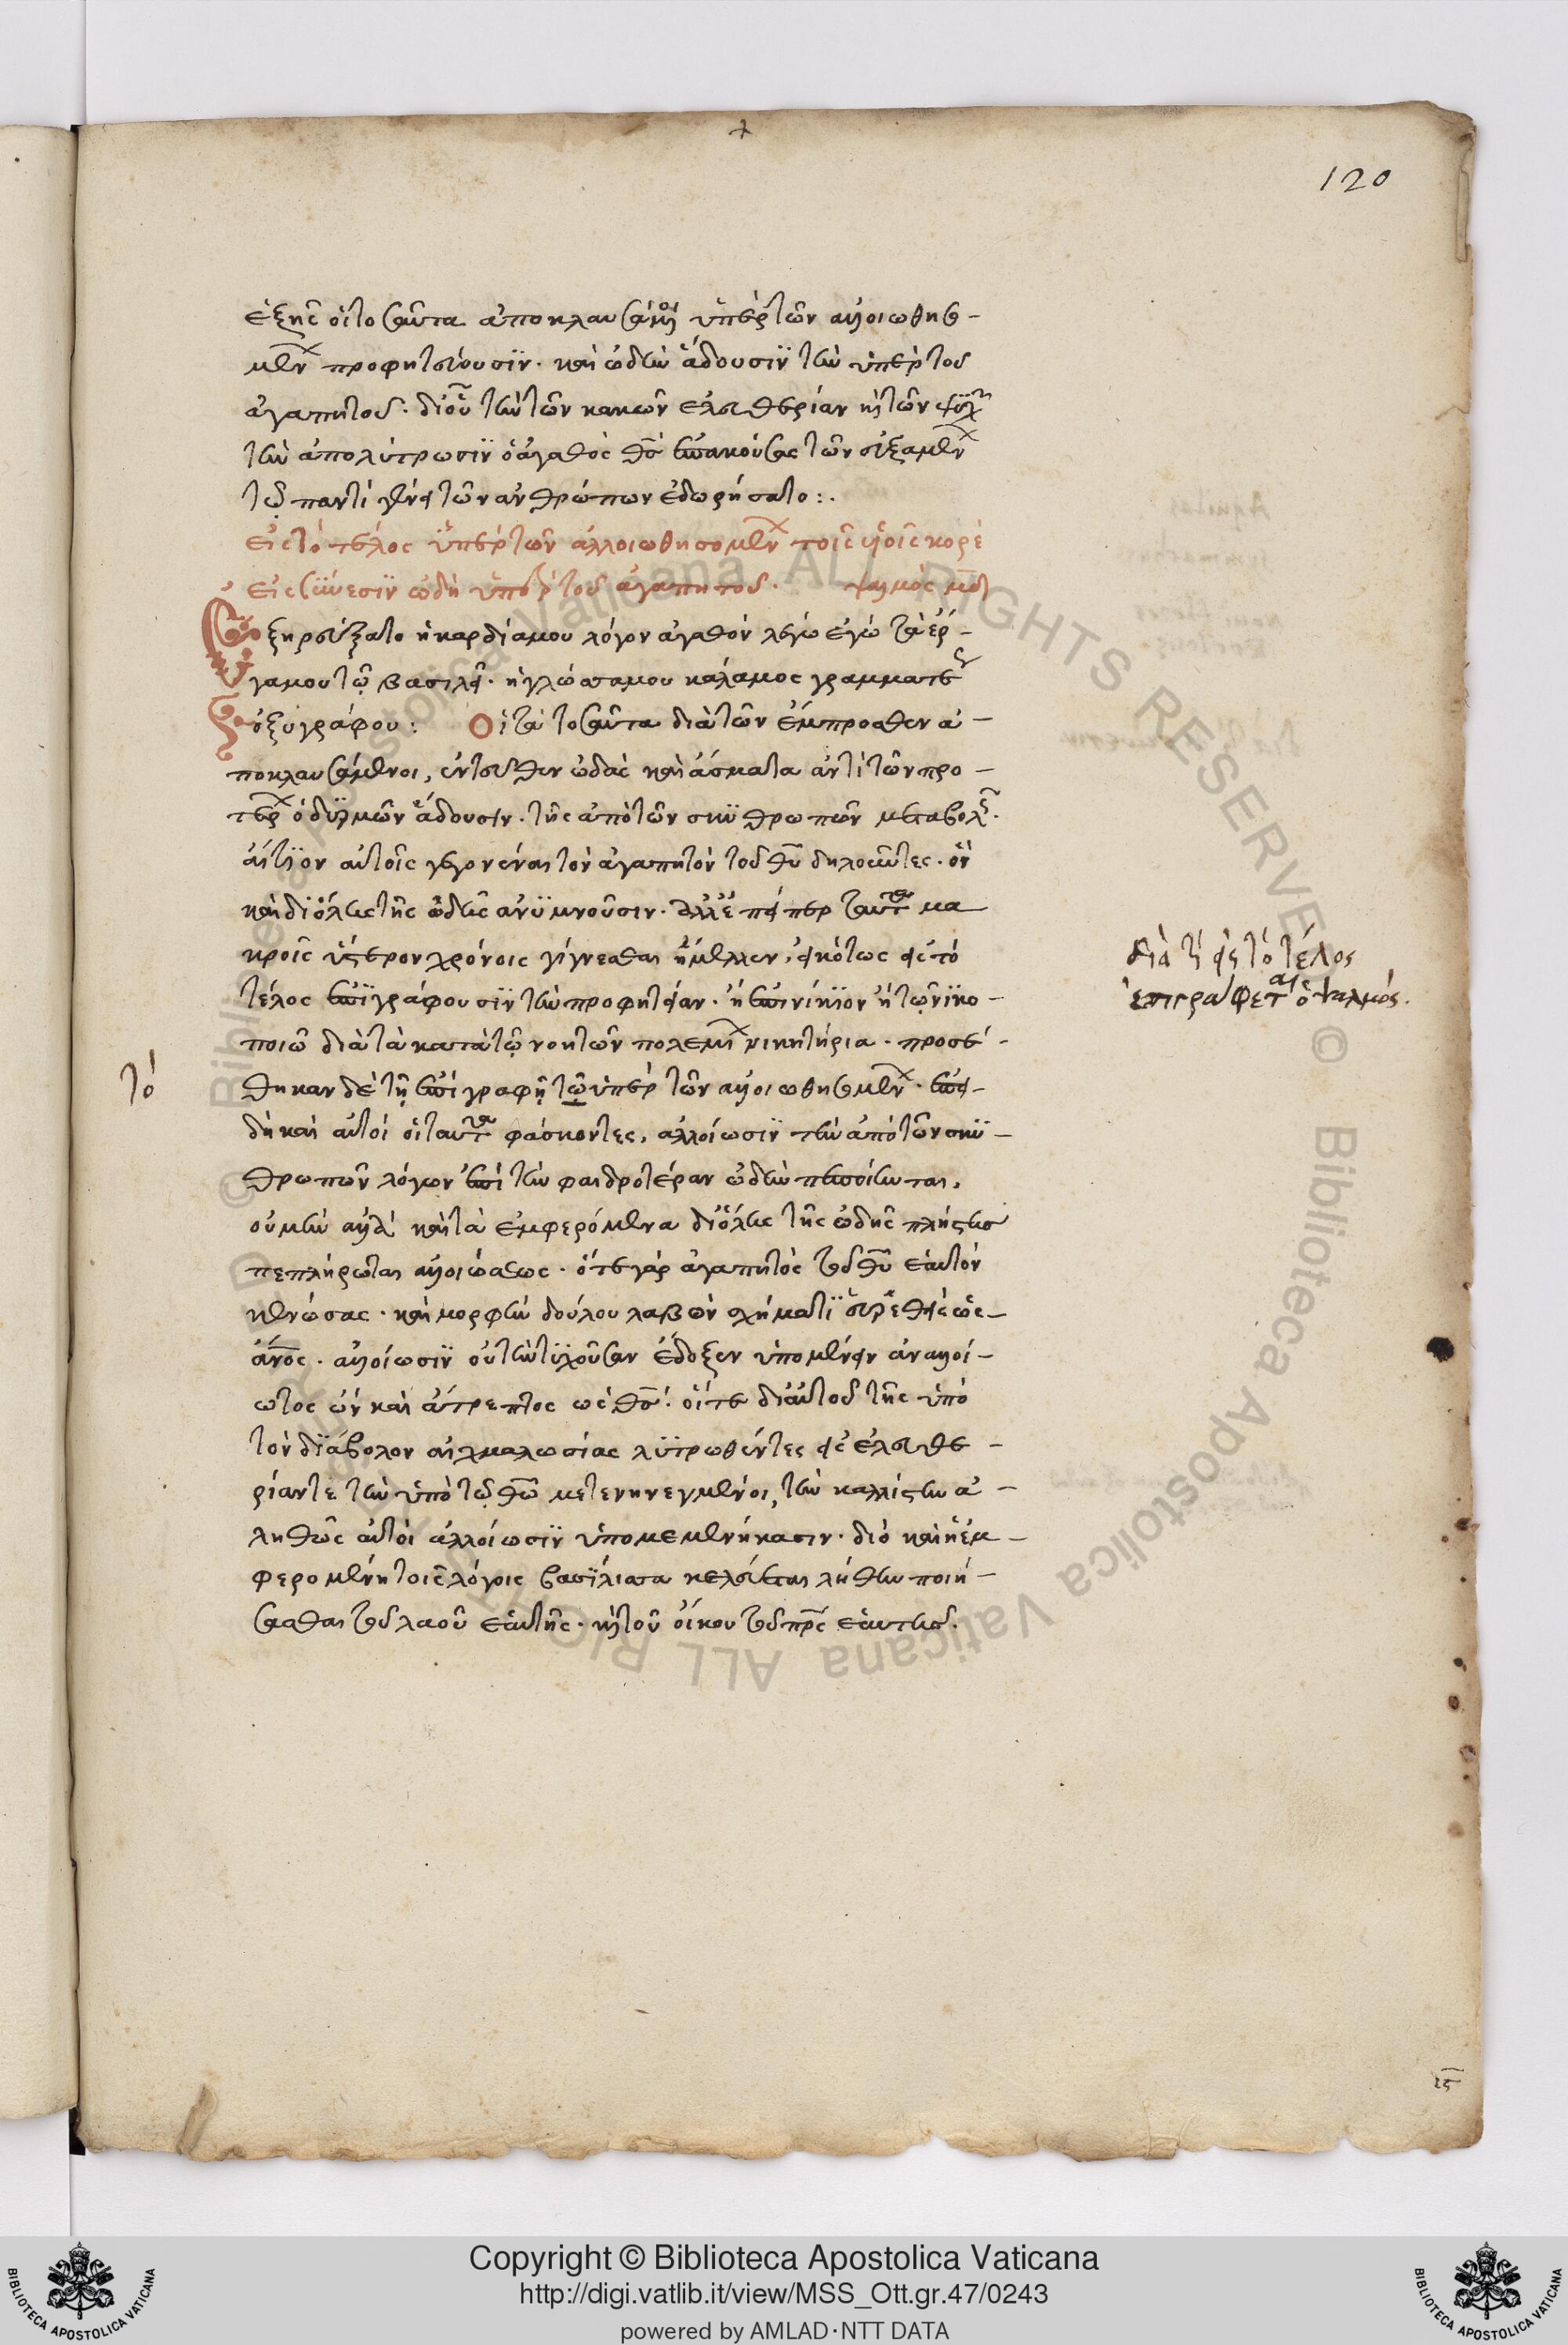 120
ἑξῆς οἱ τοσαῦτα ἀποκλαυσάμενοι ὑπὲρ τῶν ἀλλοιωθησο-
μένων προφητεύουσιν. καὶ ᾠδὴν ᾄδουσιν τὴν ὑπὲρ τοῦ
ἀγαπητοῦ. δι' οὗ τὴν τῶν κακῶν ἐλευθερίαν καὶ τῶν ψυχῶν
τὴν ἀπολύτρωσιν ὁ ἀγαθὸς θς ἐπακούσας τῶν εὐξαμένων
τῷ παντὶ γένει τῶν ἀνθρώπων ἐδωρήσατο:.
εἰς τὸ τέλος ὑπὲρ τῶν ἀλλοιωθησομένων τοῖς υἱοῖς κορὲ
εἰς σύνεσιν ᾠδὴ ὑπὲρ τοῦ ἀγαπητοῦ. ψαλμὸς μδ
Ἐξηρεύξατο ἡ καρδία μου λόγον ἀγαθὸν λέγω ἐγὼ τὰ ἔρ-
γα μου τῷ βασιλεῖ. ἡ γλῶσσα μου κάλαμος γραμματέως
ὀξυγράφου: Οἱ τὰ τοσαῦτα διὰ τῶν ἔμπροσθεν ἀ-
ποκλαυσάμενοι, ἐντεῦθεν ᾠδὰς καὶ ᾄσματα ἀντὶ τῶν προ-
τέρων ὀδυρμῶν ᾄδουσιν. τῆς ἀπὸ τῶν σκυθρωπῶν μεταβολῆς.
αἴτιον αὐτοῖς γεγονέναι τὸν ἀγαπητὸν τοῦ θυ δηλοῦντες. ὃν
καὶ δι' ὅλης τῆς ᾠδῆς ἀνυμνοῦσιν. ἀλλ' ἐπείπερ ταῦτα μα
κροῖς ὕστερον χρόνοις γίγνεσθαι ἤμελλεν, εἰκότως εἰς τὸ
τέλος ἐπιγράφουσιν τὴν προφητείαν. ἢ ἐπινίκιον ἢ τῷ νικο-
ποιῷ διὰ τὰ κατὰ τῶν νοητῶν πολεμίων νικητήρια. προσέ-
θηκαν δὲ τῇ ἐπιγραφῇ τῷ ὑπὲρ τῶν ἀλλοιωθησομένων. ἐπει-
δὴ καὶ αὐτοὶ οἱ ταῦτα φάσκοντες, ἀλλοίωσιν τὴν ἀπὸ τῶν σκυ-
θρωπῶν λόγων ἐπὶ τὴν φαιδροτέραν ᾠδὴν πεποίηνται.
οὐ μὴν ἀλλὰ καὶ τὰ ἐμφερόμενα δι' ὅλης τῆς ᾠδῆς πλήστης
πεπλήρωται ἀλλοιώσεως. ὅτε γὰρ ἀγαπητὸς τοῦ θυ ἑαυτὸν
κενώσας. καὶ μορφὴν δούλου λαβὼν σχήματι εὑρεθεὶς ὡς-
ἄνος. ἀλλοίωσιν οὐ τὴν τυχοῦσαν ἔδοξεν ὑπομένειν ἀναλλοί-
ωτος ὢν καὶ ἄτρεπτος ὡς θς. οἵ τε δι' αὐτοῦ τῆς ὑπὸ
τὸν διάβολον αἰχμαλωσίας λυτρωθέντες εἰς ἐλευθε-
ρίαν τε τὴν ὑπὸ τῷ θω μετενηνεγμένοι, τὴν καλλίστην ἀ-
ληθῶς αὐτοὶ ἀλλοίωσιν ὑπομεμενήκασιν. διὸ καὶ ἡ ἐμ-
φερομένη τοῖς λόγοις βασίλισσα κελεύεται λήθην ποιή-
σασθαι τοῦ λαοῦ ἑαυτῆς. καὶ τοῦ οἴκου τοῦ πρς ἑαυτῆς.
διὰ τί εἰς τὸ τέλος
ἐπιγράφεται ὁ ψαλμός.
τό
ις
Copyright © Biblioteca Apostolica Vaticana
http://digi.vatlib.it/view/MSS_Ott.gr.47/0243
powered by AMLAD·NTT DATA
BIBLIOTECA APOSTOLICA VATICANA
BIBLIOTECA APOSTOLICA VATICANA